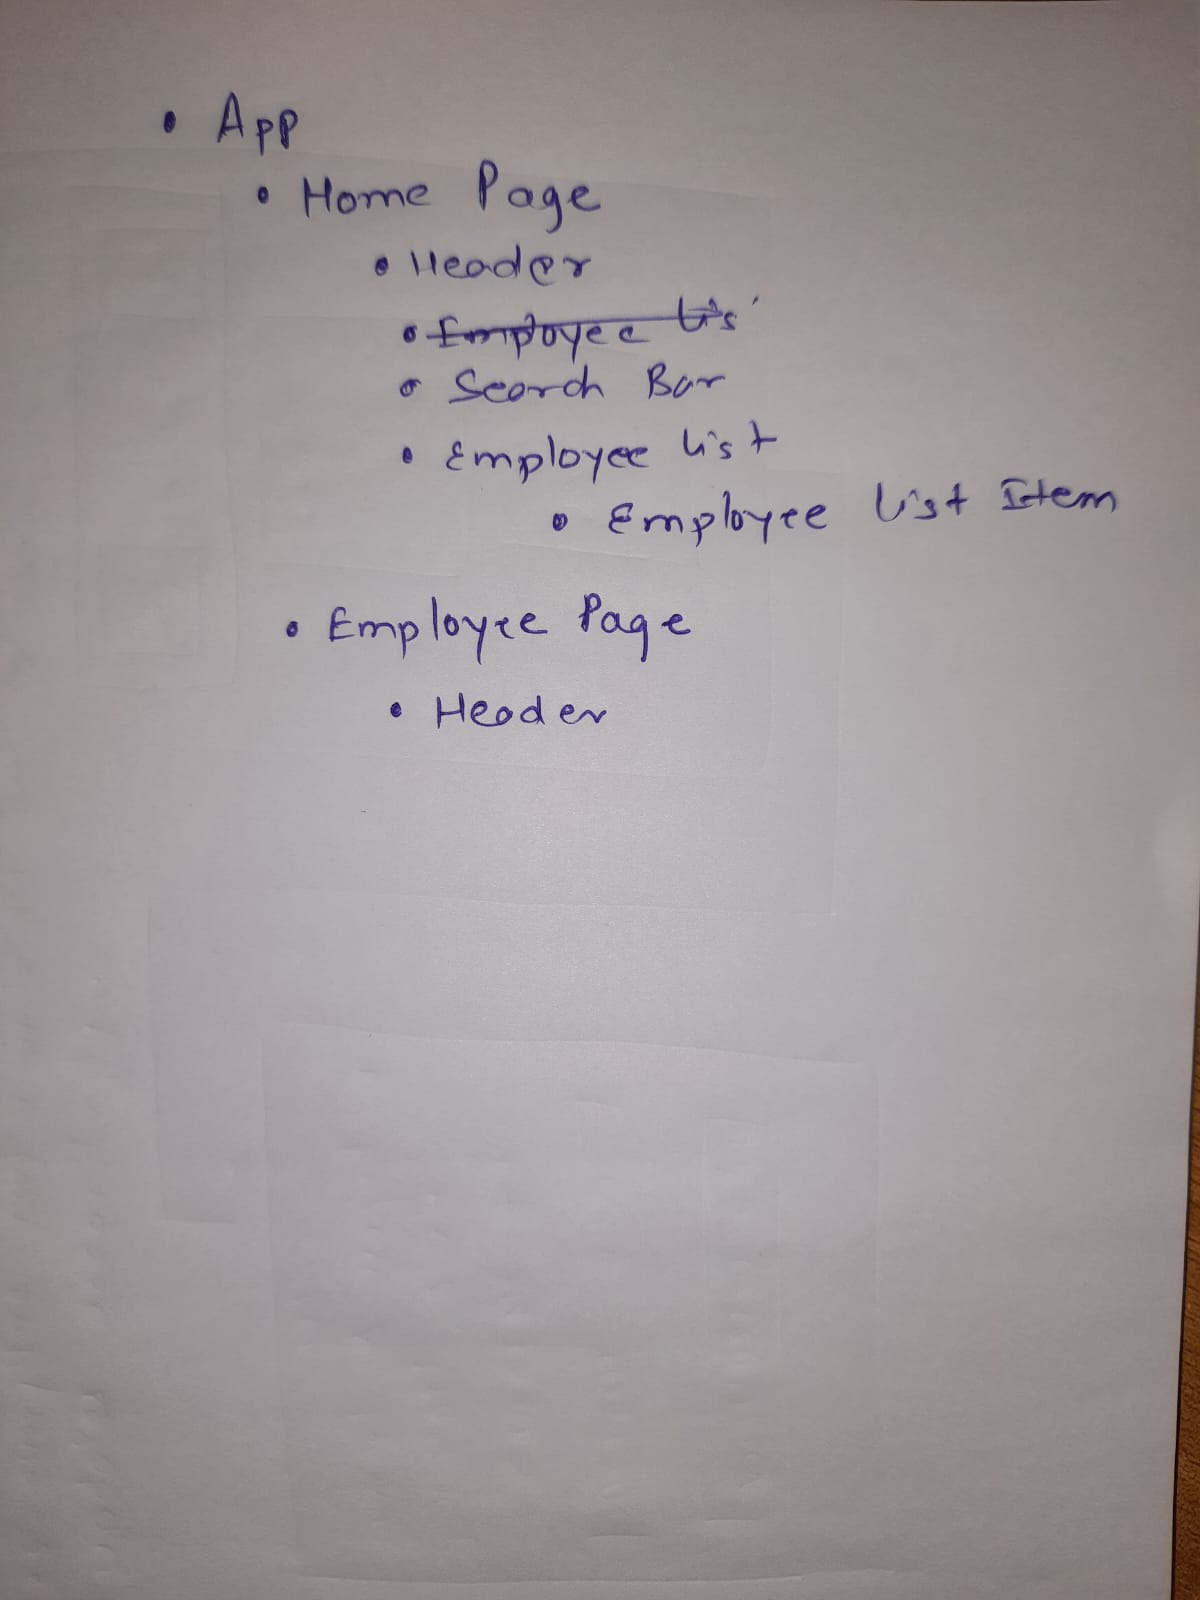 • App
• Home Page
• Header
• Employee Lis
• Search Bar
• Employee List
• Employee List Item
• Employee Page
• Header